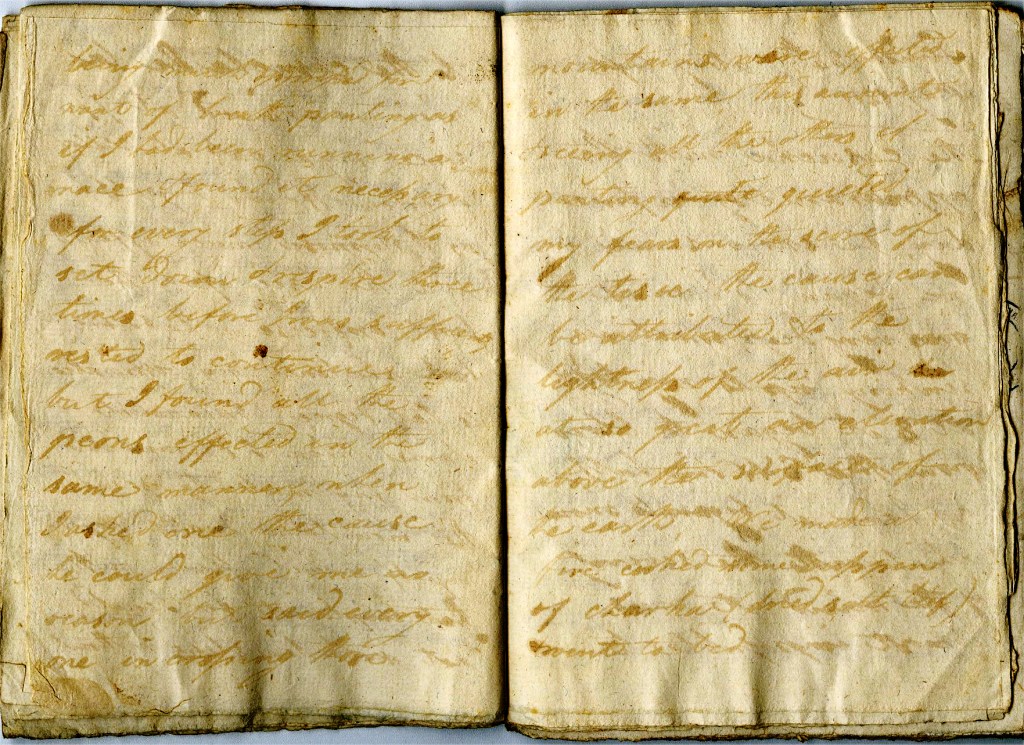 want of breath panting as
if I had been running a
race I found it necessary
for every step I took to
sett down & respire three
times before I was suffi
rested to continue
but I found all the
peons effected in the
same manner, when
I asked one the cause
he could give me no
reason but said every
one in crossing those
mountains were effected
in the same this amount
seeing all the others
panting quelld
my fears on the score of
the cause can
be attributed to the
lightness of the air
at so great an elevation
above the surface of
the earth, We made a
fire cooked some supper
of charka (dried salt beef)
went to bed